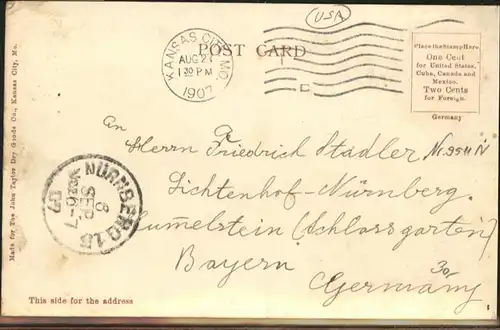 (USA)
POST CARD
KANSAS CITY, MO.
AUG 21
1 30 PM
1907
C
Place the Stamp Here.
One Cent
for United States,
Cuba, Canada and
Mexico.
Two Cents
for Foreign.
Germany
Made for The John Taylor Dry Goods Co., Kansas City, Mo.
An
Herrn Friedrich Stadler
Lichtenhof-Nürnberg.
Hummelstein (Schlossgarten)
Bayern
30
Germany
NÜRNBERG 15
SEP
07
This side for the address